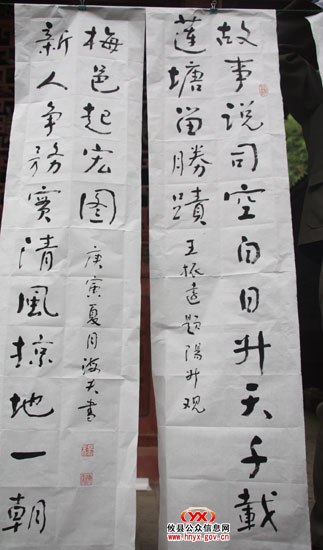 故事说司空白日升天千载
莲塘留勝蹟
王振远题阳升观
新人争务实清風掠地一朝
梅邑起宏图
庚寅夏月海夫書
攸县公众信息网
www.hnyx.gov.cn